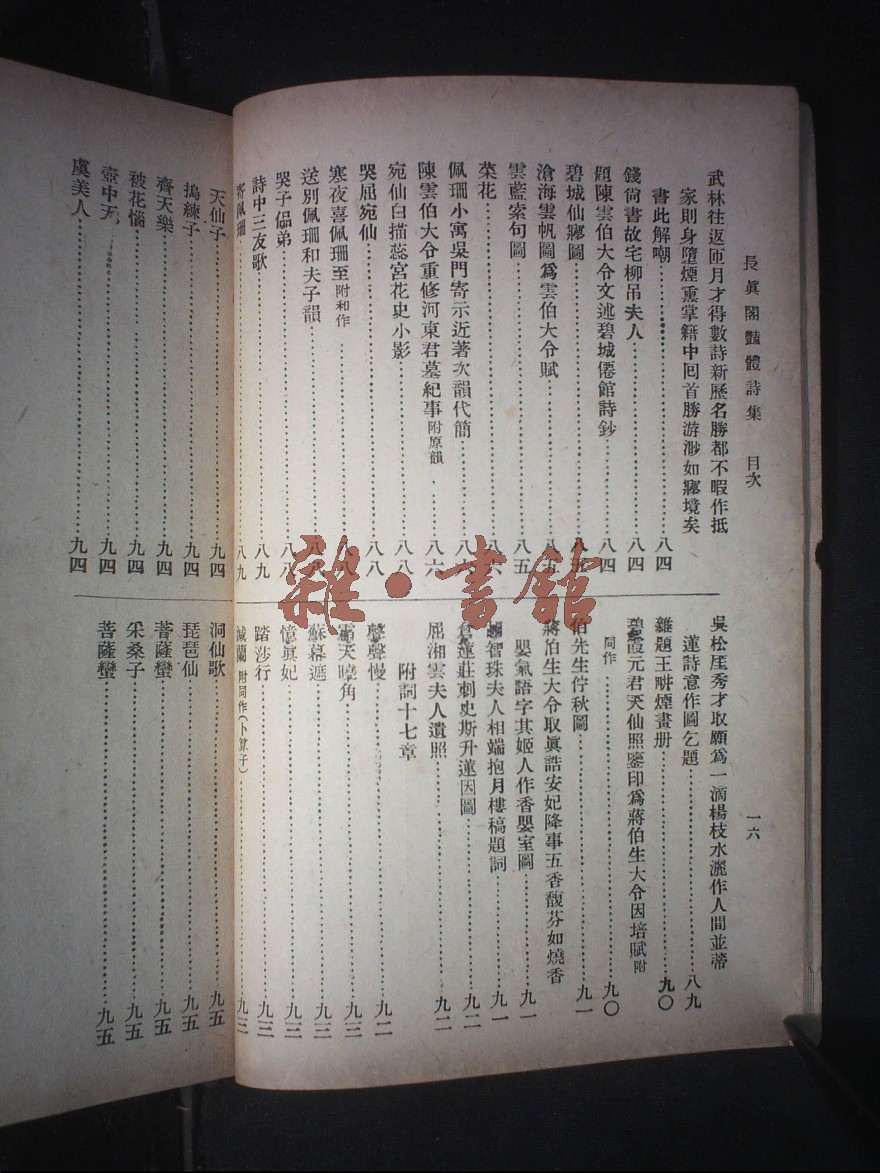 長眞閣豔體詩集　目次
一六
武林往返匝月才得數詩新歷名勝都不暇作抵
家則身墮煙熏掌籍中回首勝游渺如寤境矣
書此解嘲……八四
錢尙書故宅柳吊夫人……八四
題陳雲伯大令文述碧城僊館詩鈔……八四
碧城仙寤圖……八五
滄海雲帆圖爲雲伯大令賦……八五
雲藍索句圖……八五
菜花……八六
佩珊小寓吳門寄示近著次韻代簡……八六
陳雲伯大令重修河東君墓紀事附原韻……八六
宛仙白描蕊宮花史小影……八八
哭屈宛仙……八八
寒夜喜佩珊至附和作……八八
送別佩珊和夫子韻……八八
哭子偘弟……八八
詩中三友歌……八九
寄佩珊……八九
天仙子……九四
搗練子……九四
齊天樂……九四
被花惱……九四
壺中天……九四
虞美人……九四
吳松厓秀才取願爲一滴楊枝水灑作人間並蒂
蓮詩意作圖乞題……八九
雜題王畊煙畫册……九〇
碧霞元君天仙照鑒印爲蔣伯生大令因培賦附
同作……九〇
伯先生佇秋圖……九一
蔣伯生大令取眞誥安妃降事五香馥芬如燒香
嬰氣語字其姬人作香嬰室圖……九一
智珠夫人相端抱月樓稿題詞……九一
蓮莊刺史斯升蓮因圖……九二
屈湘雲夫人遺照……九二
附詞十七章
聲聲慢……九二
霜天曉角……九三
蘇幕遮……九三
憶眞妃……九三
踏莎行……九三
減蘭 附同作(卜算子)……九三
洞仙歌……九五
琵琶仙……九五
菩薩蠻……九五
采桑子……九五
菩薩蠻……九五
雜·書館